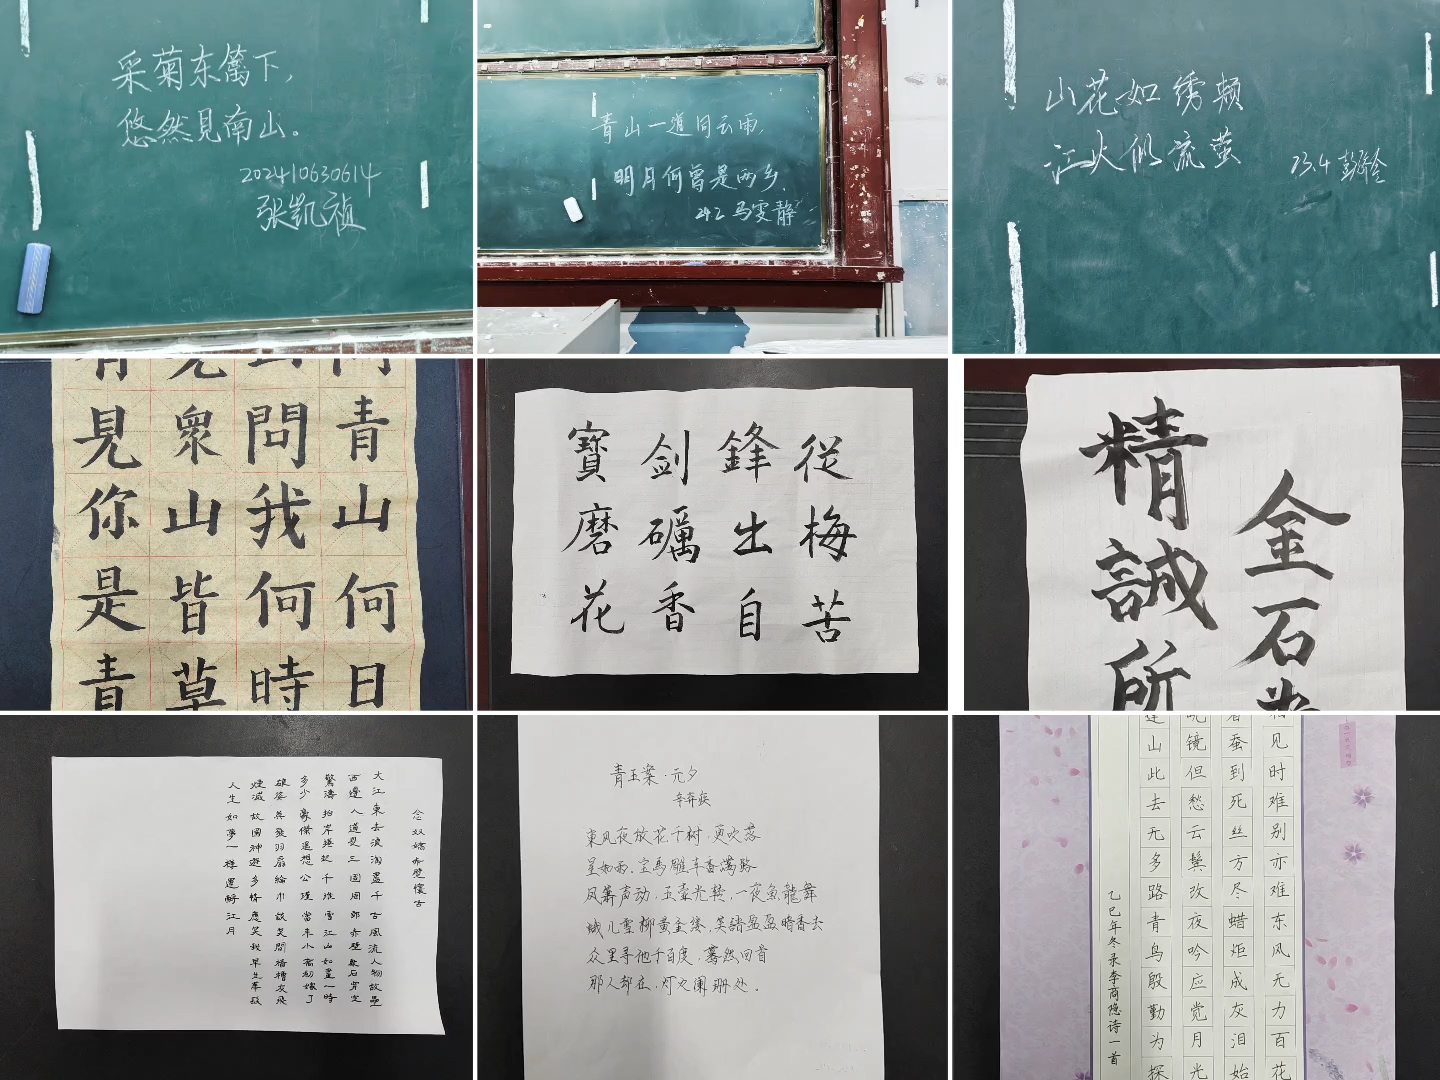 采菊东篱下,
悠然見南山。
202410630614
张凯祯
青山一道同云雨,
明月何曾是两乡.
242 马雯静
山花如绣颊
江火似流萤
23.4 彭
青山何日
問我何時
衆山皆草
見你是青
寶劍鋒從
磨礪出梅
花香自苦
金石為
精誠所
念奴嬌赤壁懷古
大江東去浪淘盡千古風流人物故壘
西邊人道是三國周郎赤壁亂石穿空
驚濤拍岸捲起千堆雪江山如畫一時
多少豪傑遙想公瑾當年小喬初嫁了
雄姿英發羽扇綸巾談笑間檣櫓灰飛
煙滅故國神遊多情應笑我早生華髮
人生如夢一樽還酹江月
青玉案·元夕
辛弃疾
東风夜放花千树,更吹落
星如雨,宝馬雕车香满路
凤箫声动,玉壶光转,一夜魚龍舞
蛾儿雪柳黄金缕,笑語盈盈暗香去
众里寻他千百度,蓦然回首
那人却在,灯火阑珊处。
见时难别亦难东风无力百花
春蚕到死丝方尽蜡炬成灰泪始
晓镜但愁云鬓改夜吟应觉月光
蓬山此去无多路青鸟殷勤为探
乙巳年冬录李商隐诗一首